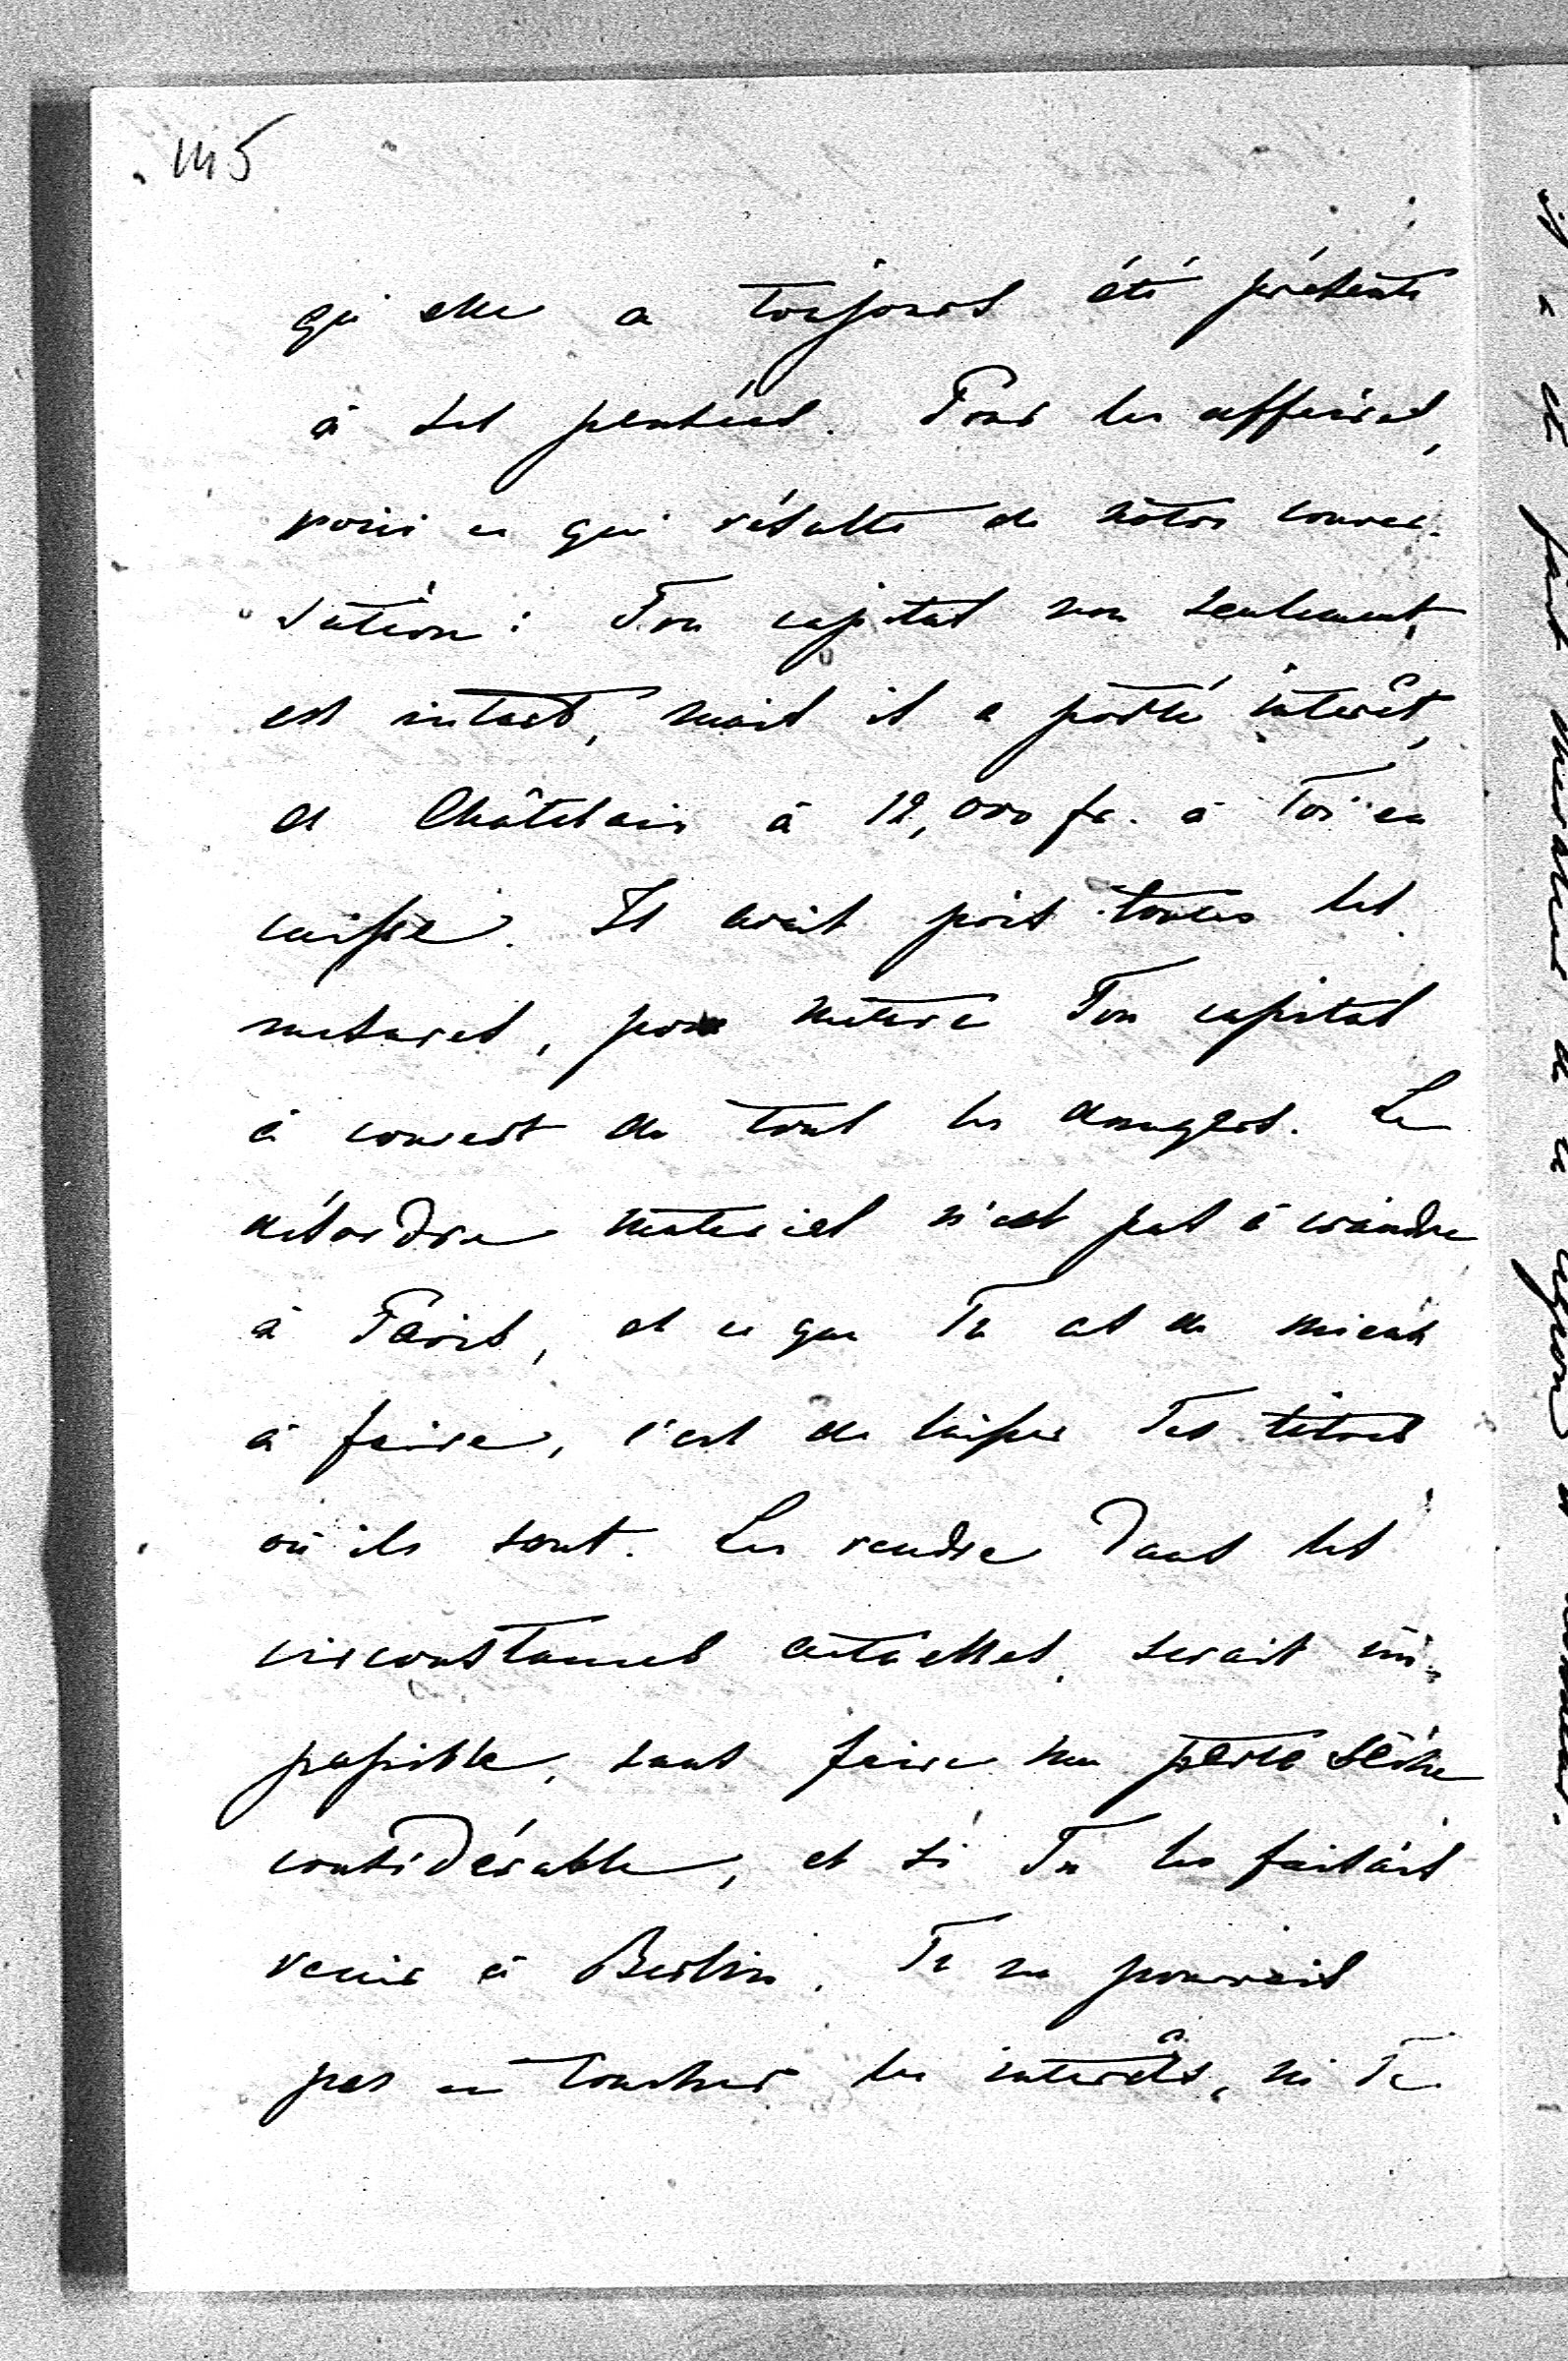 145
qu'elle a toujours été présente
à ses pensées. Pour les affaires,
voici ce qui résulte de nôtre conver-
sation: Ton capital non seulement
est intact, mais il a porté intérêt,
et Châtelain à 12,000 fr. à Toi en
caisse. Il avait pris toutes les
mesures, pour mettre Ton capital
à couvert de tous les dangers. Le
désordre matériel n'est pas à craindre
à Paris, et ce que Tu as de mieux
à faire, c'est de laisser Tes titres
où ils sont. Les vendre dans les
circonstances actuelles, serait im-
possible, sans faire une perte sèche
considérable, et si Tu les faisais
venir à Berlin, Tu ne pourrais
pas en toucher les intérêts, ni Te